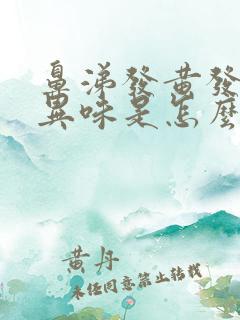 鼻涕發黃發
異味是怎麼
黃丹
未經同意禁止轉載